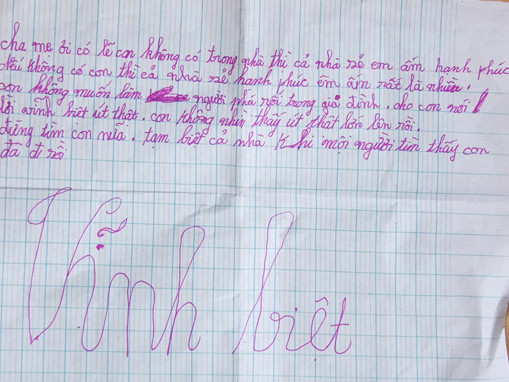 cha mẹ ơi có lẽ con không có trong nhà thì cả nhà sẻ em ấm hanh phúc
nếu không có con thì cả nhà sẻ hanh phúc êm ấm rất là nhiều.
con không muốn làm người phá rối trong gia đình. cho con nói 1
lời vĩnh biệt út thật. con không nhìn thấy út thật lớn lên rồi.
đừng tìm con nữa. tam biệt cả nhà khi mọi người tìm thấy con
đã đi rồi
Vĩnh biệt